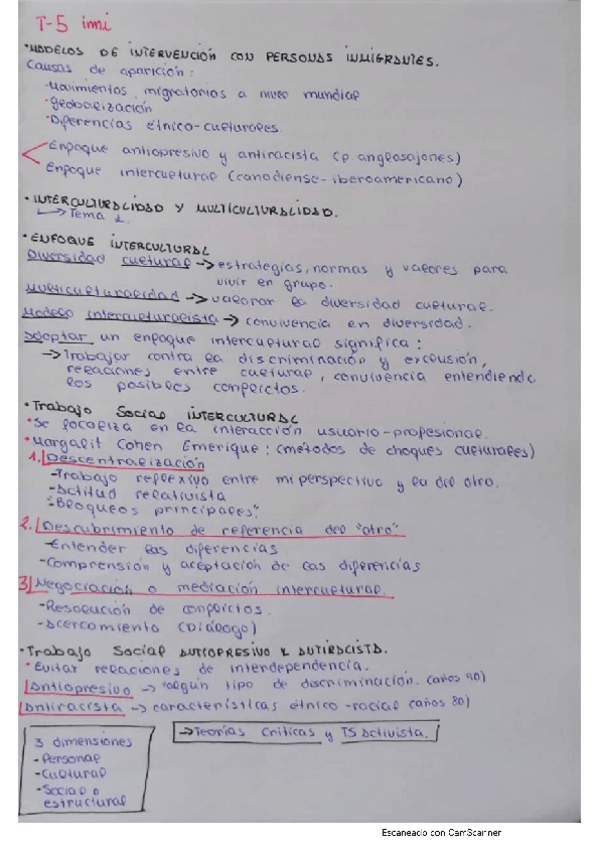 T-5 inmi
• MODELOS DE INTERVENCIÓN CON PERSONAS INMIGRANTES.
Causas de aparición:
-Movimientos migratorios a nivel mundial
•Globalización
•Diferencias étnico-culturales.
Enfoque antiopresivo y antiracista (p. anglosajones)
Enfoque intercultural (canadiense-iberoamericano)
• INTERCULTURALIDAD Y MULTICULTURALIDAD.
→ Tema 1.
• ENFOQUE INTERCULTURAL
Diversidad cultural → estrategias, normas y valores para
vivir en grupo.
Multiculturalidad → valorar la diversidad cultural.
Modelo interculturalista → convivencia en diversidad.
Adoptar un enfoque intercultural significa:
→ Trabajar contra la discriminación y exclusión,
relaciones entre cultural, convivencia entendiendo
los posibles conflictos.
• Trabajo Social INTERCULTURAL
• Se focaliza en la interacción usuario-profesional.
• Margalit Cohen Emerique: (métodos de choques culturales)
1. Descentralización
-Trabajo reflexivo entre mi perspectiva y la del otro.
-Actitud relativista
-"Bloqueos principales"
2. Descubrimiento de referencia del "otro"
-Entender las diferencias
-Comprensión y aceptación de las diferencias
3) Negociación o mediación intercultural.
-Resolución de conflictos.
-Acercamiento (Diálogo)
• Trabajo Social ANTIOPRESIVO Y ANTIRACISTA.
• Evitar relaciones de interdependencia.
Antiopresivo → algún tipo de discriminación. (años 90)
Antiracista → características étnico-racial (años 80)
→ Teorías Críticas y TS Activista.
3 dimensiones
-Personal
-Cultural
-Social o
estructural
Escaneado con CamScanner